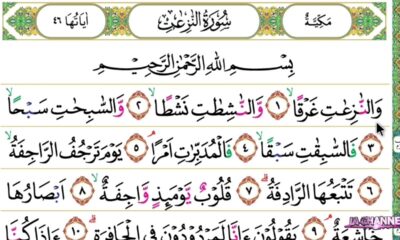 مَكِيَّةٌ سُورَةُ النّٰزِعٰتِ اٰيَاتُهَا ٤٦
بِسْمِ اللّٰهِ الرَّحْمٰنِ الرَّحِيْمِ
وَالنّٰزِعٰتِ غَرْقًا ۙ ١ وَّالنّٰشِطٰتِ نَشْطًا ۙ ٢ وَّالسّٰبِحٰتِ سَبْحًا ۙ
٣ فَالسّٰبِقٰتِ سَبْقًا ۙ ٤ فَالْمُدَبِّرٰتِ اَمْرًا ۘ ٥ يَوْمَ تَرْجُفُ الرَّاجِفَةُ ۙ
٦ تَتْبَعُهَا الرَّادِفَةُ ۗ ٧ قُلُوْبٌ يَّوْمَىِٕذٍ وَّاجِفَةٌ ۙ ٨ اَبْصَارُهَا
خَاشِعَةٌ ۘ ٩ يَقُوْلُوْنَ ءَاِنَّا لَمَرْدُوْدُوْنَ فِى الْحَافِرَةِ ۗ ١٠ ءَاِذَا كُنَّا